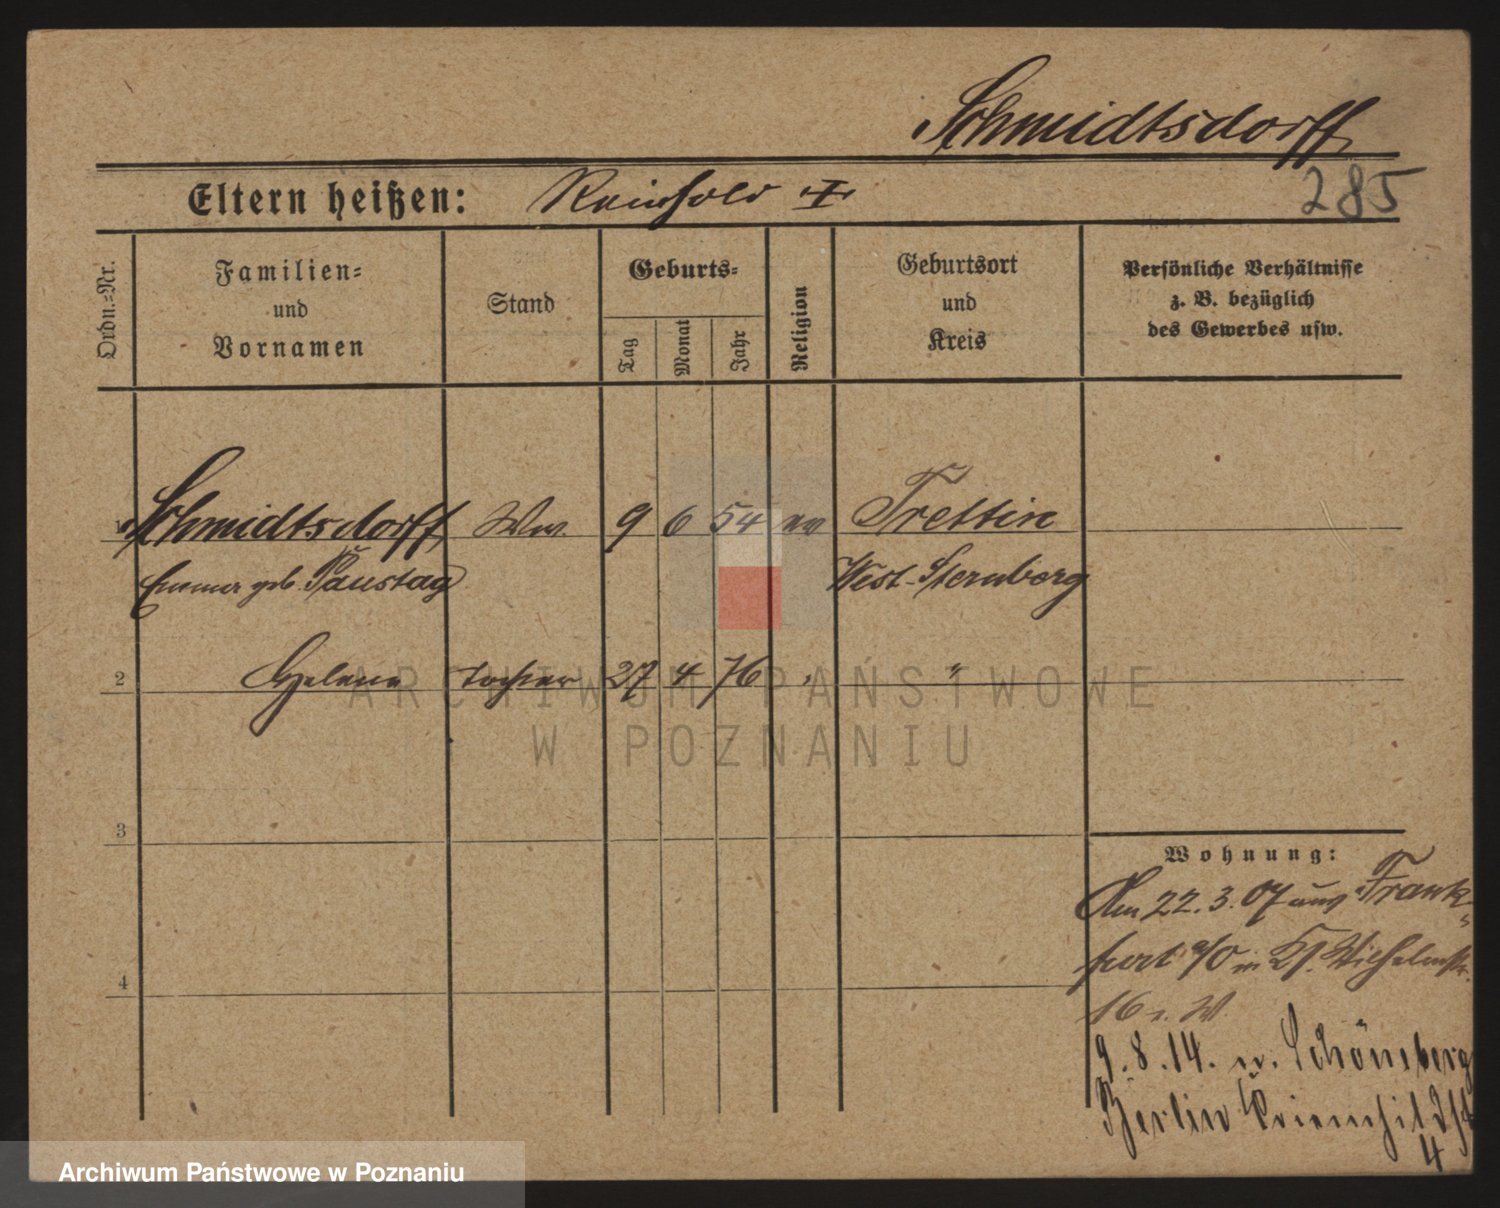 Schmidtsdorff
Eltern heißen: Reinhold
285
Ordn.=Nr.
Familien=
und
Vornamen
Stand
Geburts=
Tag
Monat
Jahr
Religion
Geburtsort
und
Kreis
Persönliche Verhältnisse
z. B. bezüglich
des Gewerbes usw.
1 Schmidtsdorff Ww. 9 6 54 ev Trettin
Emma geb. Paustag West-Sternberg
2 Helene Tochter 27 4 76 " "
ARCHIWUM PAŃSTWOWE
W POZNANIU
3
Wohnung:
Am 22.3.07 aus Frank-
furt a/O in Wilhelmstr.
4
16
9.8.14. n. Schöneberg
Berlin Kriemhildst
4
Archiwum Państwowe w Poznaniu